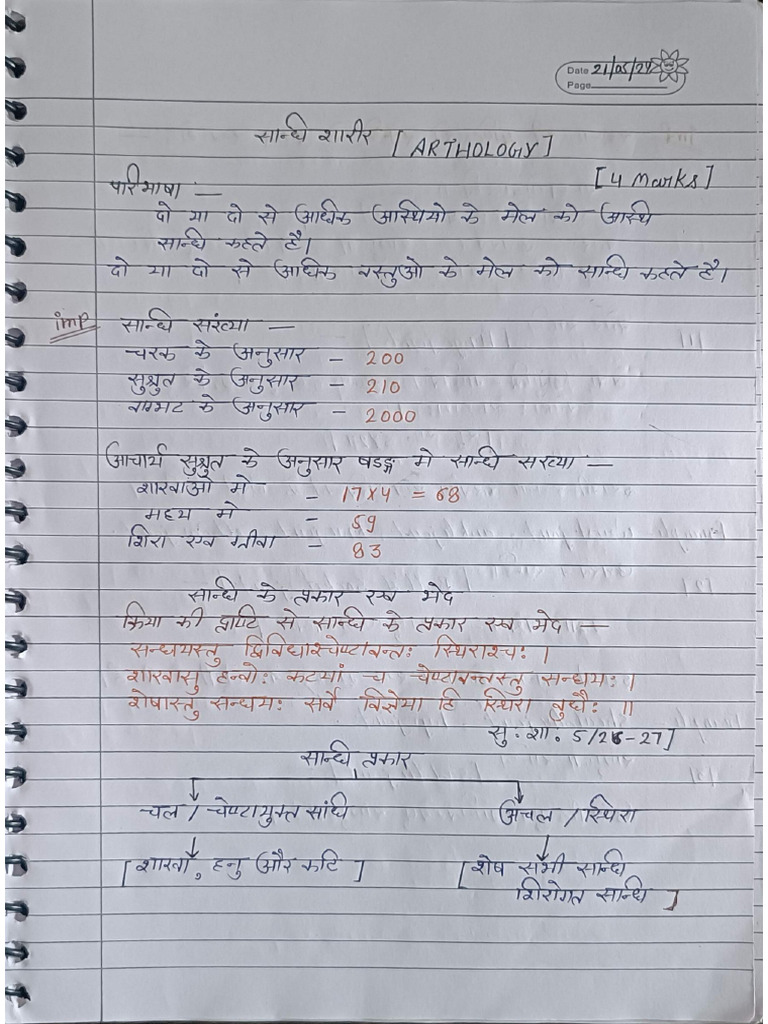 Date 21/05/24
Page
सान्धि शारीर [ ARTHOLOGY ]
[ 4 Marks ]
परिभाषा : —
दो या दो से अधिक अस्थियो के मेल को अस्थि
सान्धि कहते है।
दो या दो से अधिक वस्तुओ के मेल को सान्धि कहते है।
imp सान्धि संख्या —
चरक के अनुसार – 200
सुश्रुत के अनुसार – 210
वाग्भट के अनुसार – 2000
आचार्य सुश्रुत के अनुसार षडङ्ग मे सान्धि सख्या —
शाखाओ मे – 17x4 = 68
मध्य मे – 59
शिरा एंव ग्रीवा – 83
सान्धि के प्रकार एंव भेद
क्रिया की दृष्टि से सान्धि के प्रकार एंव भेद —
सन्धयस्तु द्विविधाश्चेष्टावन्तः स्थिराश्चः ।
शाखासु हन्वोः कटयां च चेष्टावन्तस्तु सन्धयः ।
शेषास्तु सन्धयः सर्वे विज्ञेया हि स्थिरा बुधैः ॥
सु. शा. 5/26-27]
सान्धि प्रकार
चल / चेष्टायुक्त सांधि अचल / स्थिरा
[ शाखा, हनु और कटि ] [ शेष सभी सान्धि
शिरोगत सान्धि ]